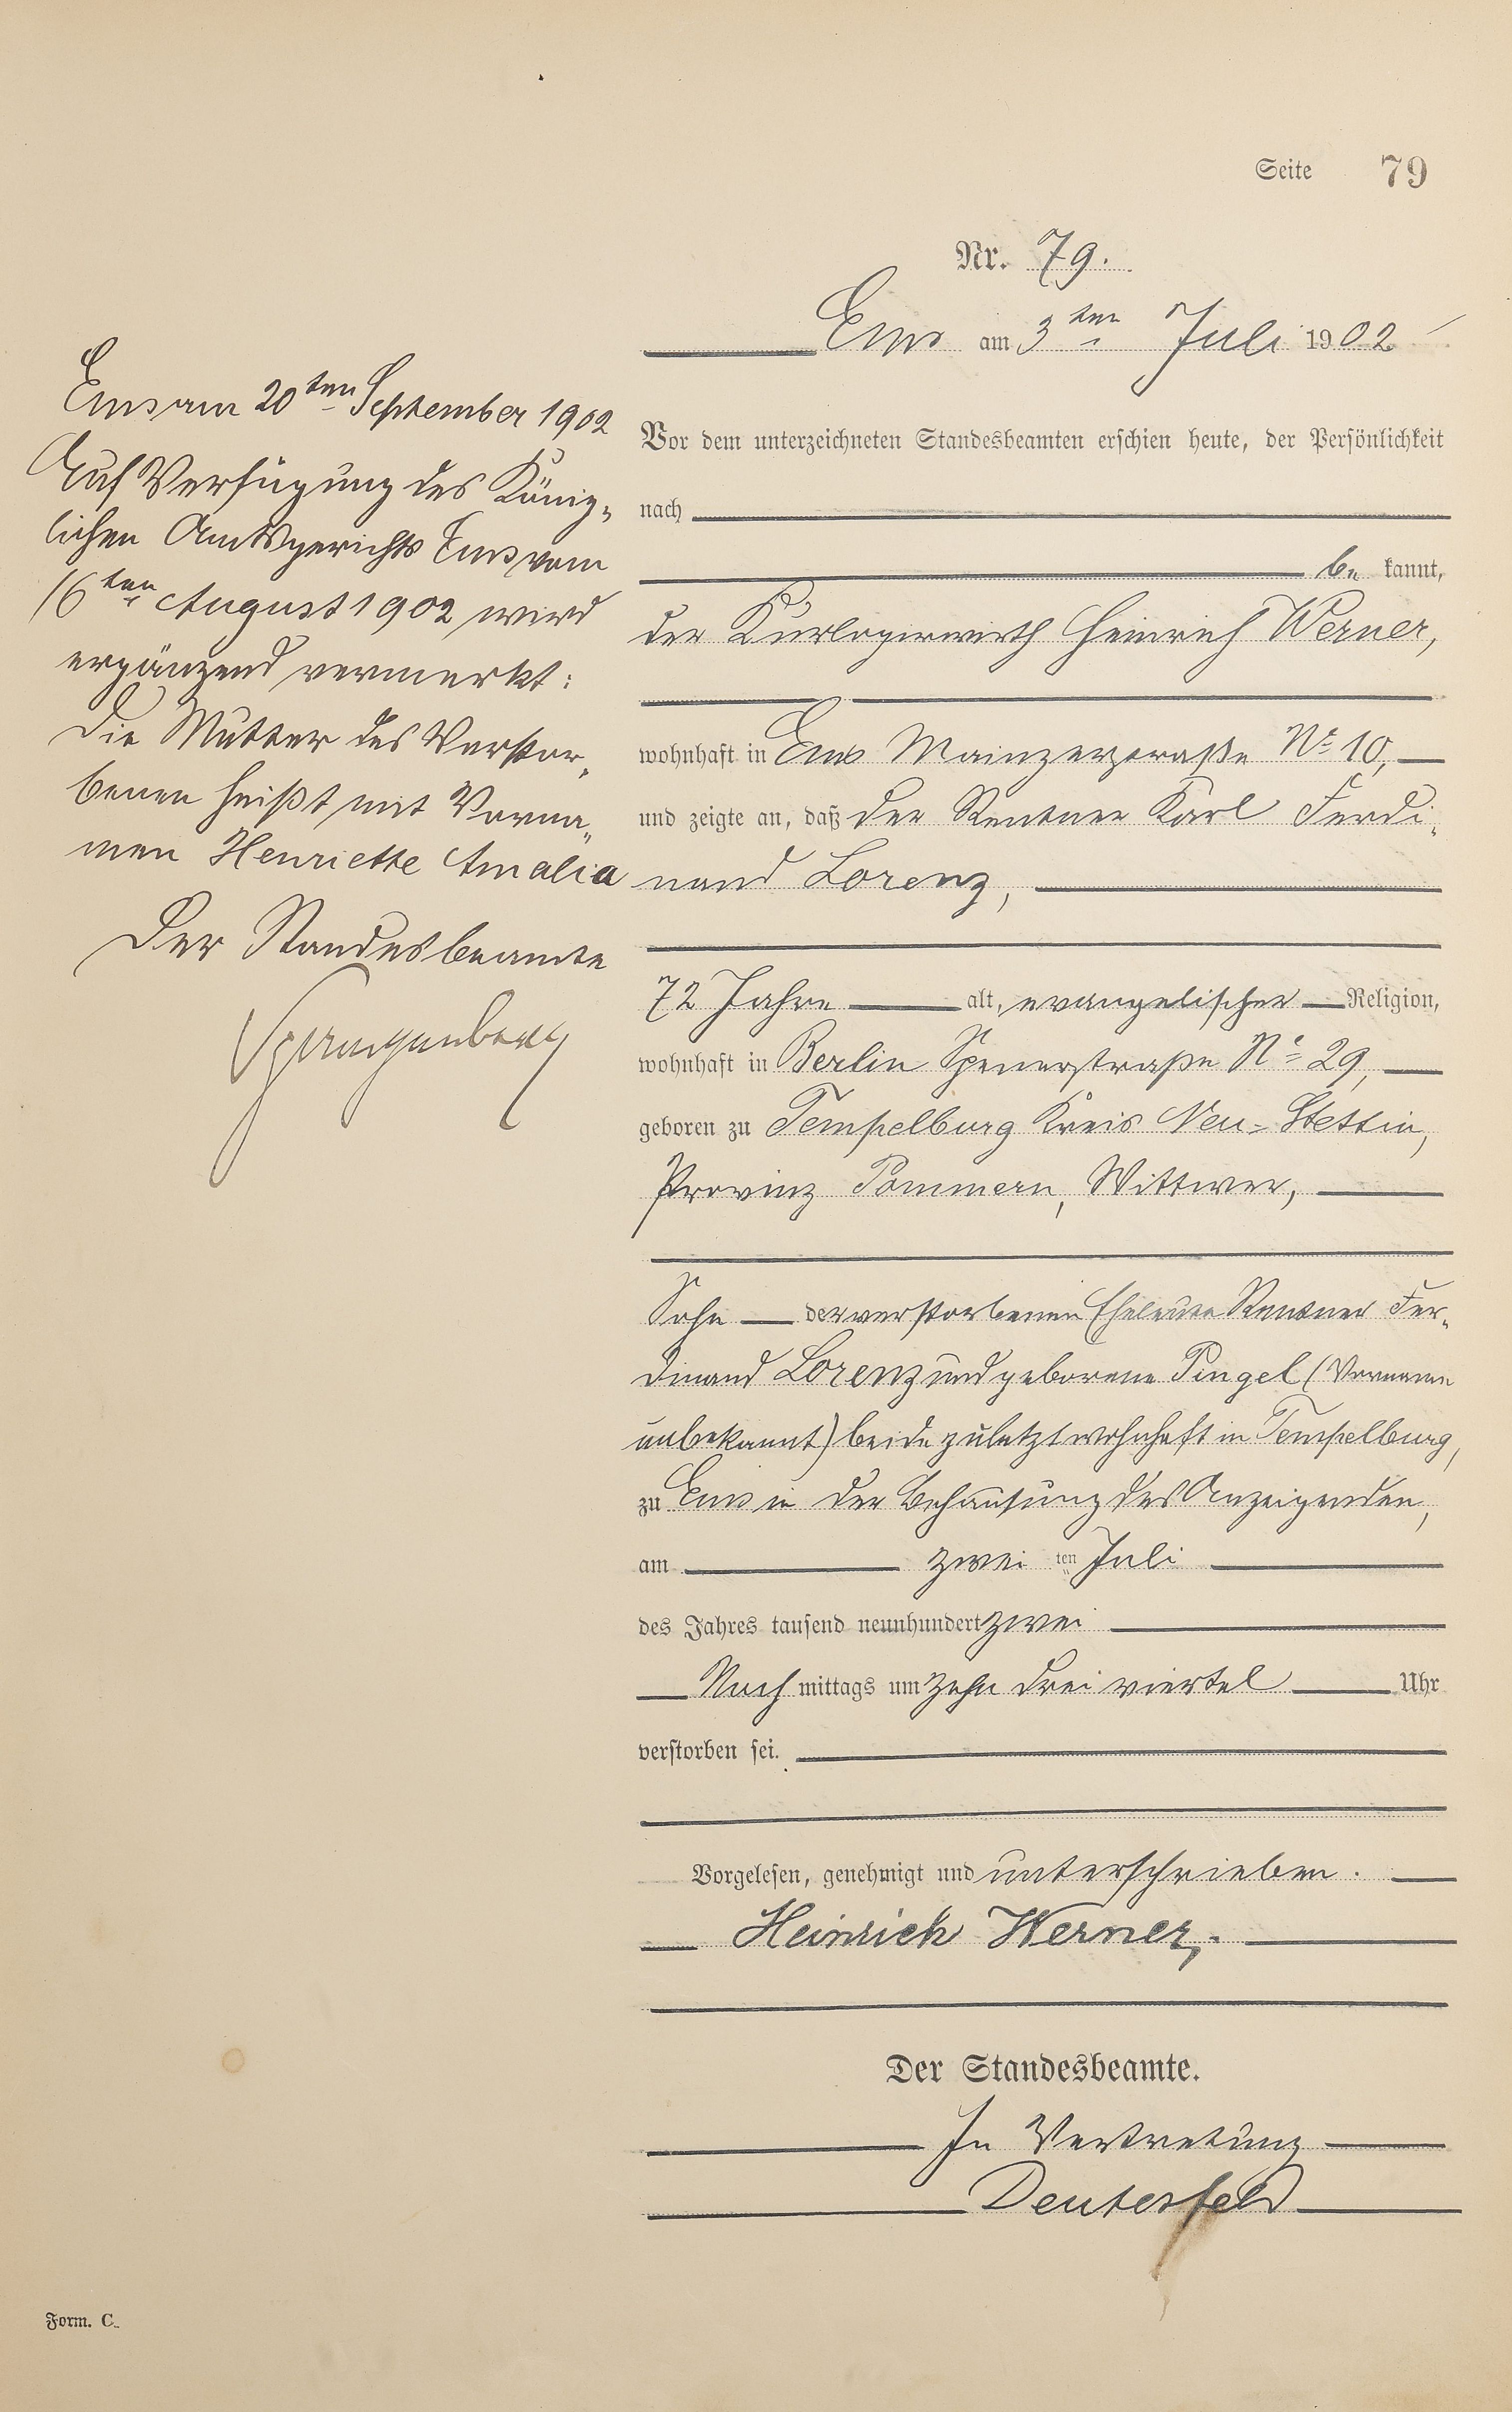 Seite 79
Nr. 79.
Ems am 3ten Juli 1902
Vor dem unterzeichneten Standesbeamten erschien heute, der Persönlichkeit
nach
be kannt,
der Kurlogirwirth Heinrich Werner,
wohnhaft in Ems Mainzerstraße No 10,
und zeigte an, daß der Rentner Karl Ferdi-
nand Lorenz,
72 Jahre alt, evangelischer Religion,
wohnhaft in Berlin Spenerstraße No 29,
geboren zu Tempelburg Kreis Neu-Stettin,
Provinz Pommern, Wittwer,
Sohn der verstorbenen Eheleute Rentner Fer-
dinand Lorenz und geborene Pingel (Vorname
unbekannt) beide zuletzt wohnhaft in Tempelburg,
zu Ems in der Behausung des Anzeigenden,
am zwei ten Juli
des Jahres tausend neunhundert zwei
Nach mittags um zehn drei viertel Uhr
verstorben sei.
Vorgelesen, genehmigt und unterschrieben.
Heinrich Werner.
Der Standesbeamte.
In Vertretung
Deutesfeld
Ems am 20ten September 1902
Auf Verfügung des König-
lichen Amtsgerichts Ems vom
16ten August 1902 wird
ergänzend vermerkt:
Die Mutter des Verstor-
benen heißt mit Vorna-
men Henriette Amalia
Der Standesbeamte
Spangenberg
Form. C.